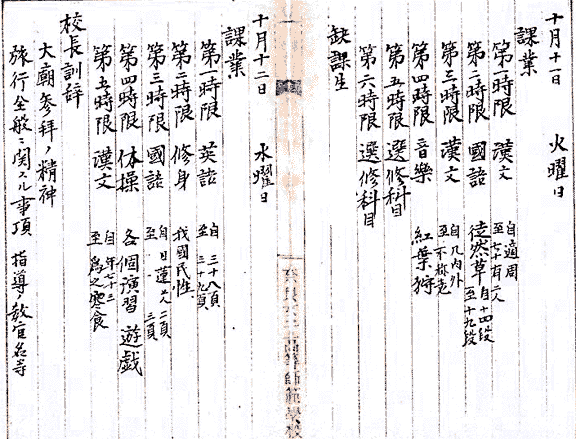 十月十一日 火曜日
課業
第一時限 漢文 自適周 至七十有二人
第二時限 國語 徒然草 自十四段 至十九段
第三時限 漢文 自几内外 至不称克
第四時限 音樂 紅葉狩
第五時限 選修科目
第六時限 選修科目
缺課生
高等師範學校
十月十二日 水曜日
課業
第一時限 英語 自三十八頁 至三十九頁
第二時限 修身 我國民性
第三時限 國語 自日蓮上人二頁 至 三頁
第四時限 体操 各個演習 遊戯
第五時限 漢文 自年七十三 至為之寒食
校長訓辞
大廟参拝ノ精神
旅行全般ニ関スル事項 指導ノ教官名等